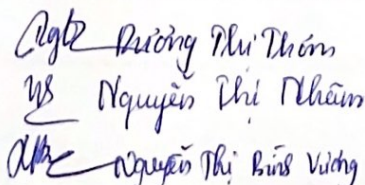 Dương Thị Thơm
Nguyễn Thị Nhâm
Nguyễn Thị Bình Vương